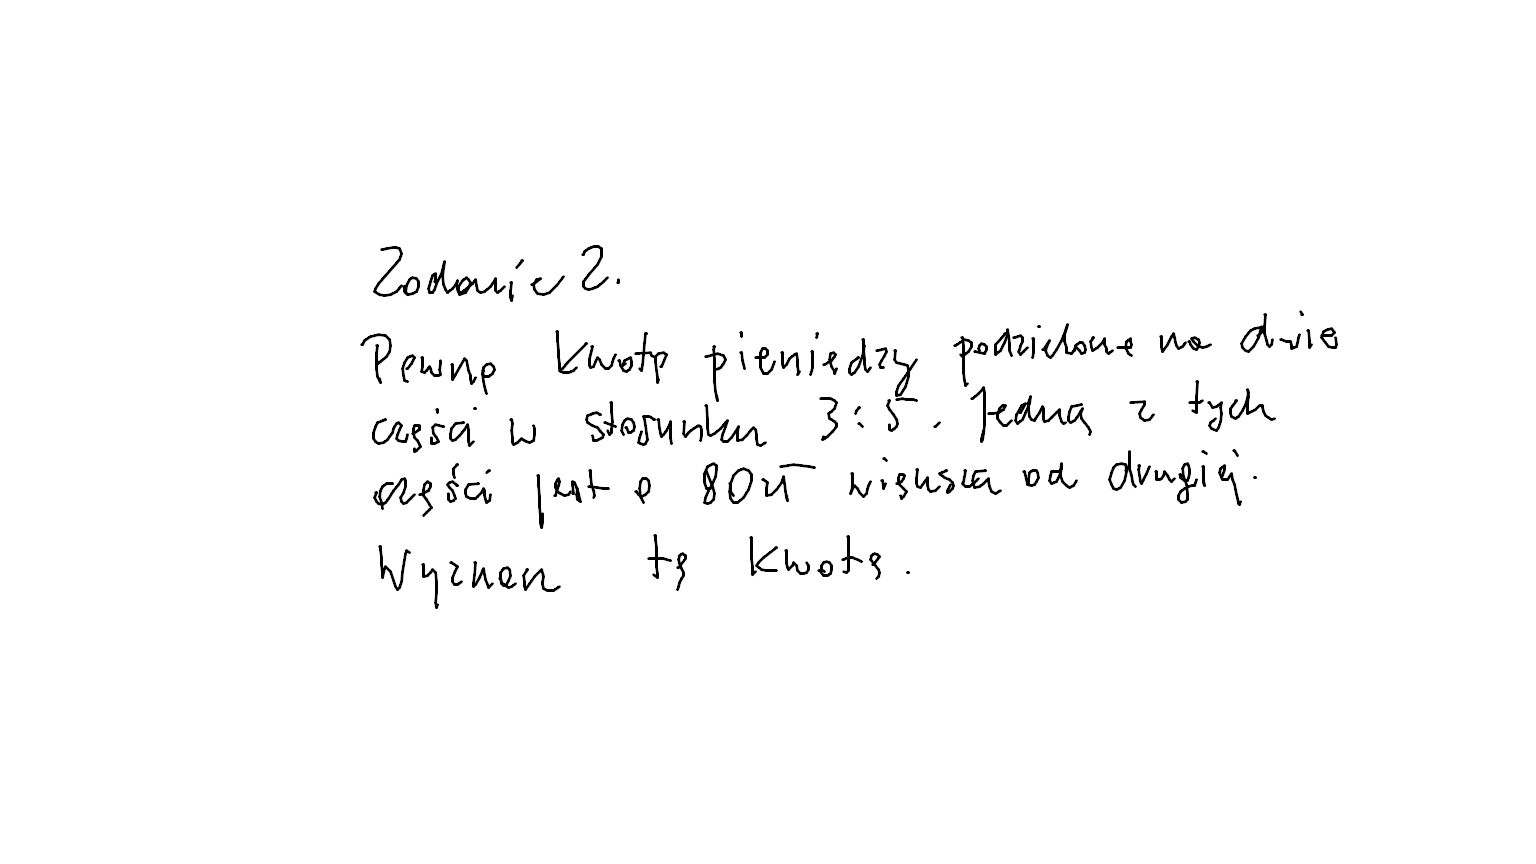 Zadanie 2.
Pewną kwotę pieniędzy podzielono na dwie
części w stosunku 3:5. Jedna z tych
części jest o 80zł większa od drugiej.
Wyznacz tę kwotę.